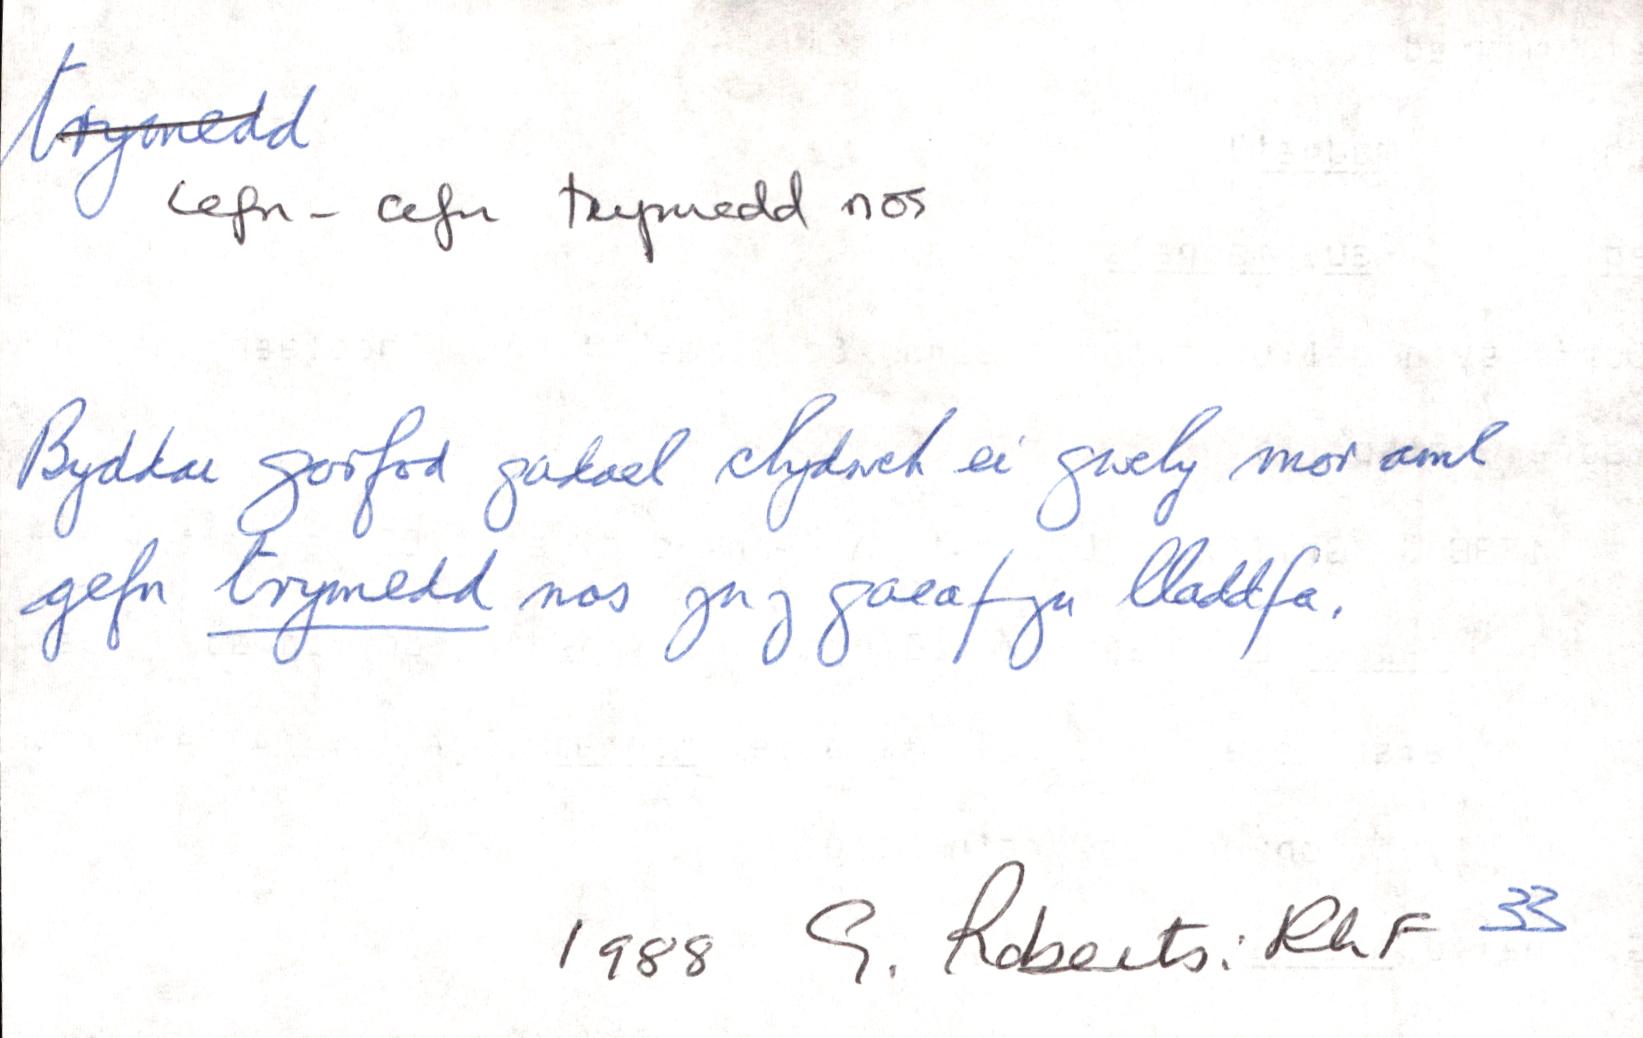 trymedd
cefn - cefn trymedd nos
Byddai gorfod gadael clydwch ei gwely mor aml
gefn trymedd nos yn y gaeaf yn lladdfa.
1988 G. Roberts: RhF 33